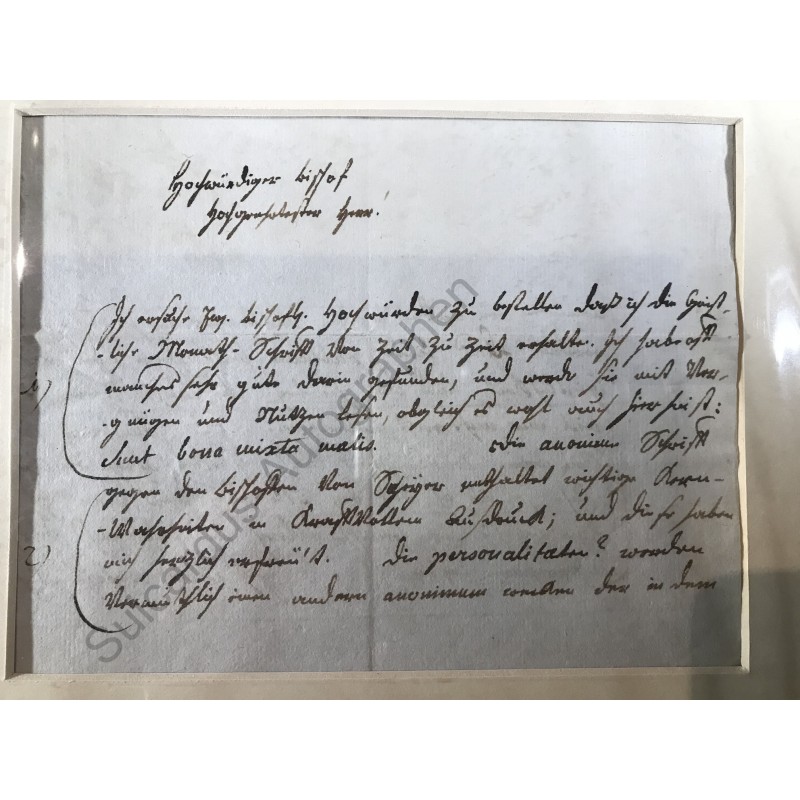 Hochwürdiger Bischof
Hochgeehrtester Herr!
Ich ersuche Ew. Bischöfl. Hochwürden zu bestellen daß ich die Geist-
-liche Monath-Schrift von Zeit zu Zeit erhalte. Ich habe oft
1) manches sehr gute darin gefunden, und werde sie mit Ver-
-gnügen und Nutzen lesen, obgleich es wohl auch hier heist:
Sunt bona mixta malis. Die anonime Schrift
gegen den Bischoffen von Speyer enthaltet wichtige Kern-
-Wahrheiten in Kraftvollem Ausdruck; und diese haben
2) mich herzlich erfreu't. Die personalitaeten? werden
Vermuthlich einen andern anonimum wecken der in dem
Suicardus Autographen